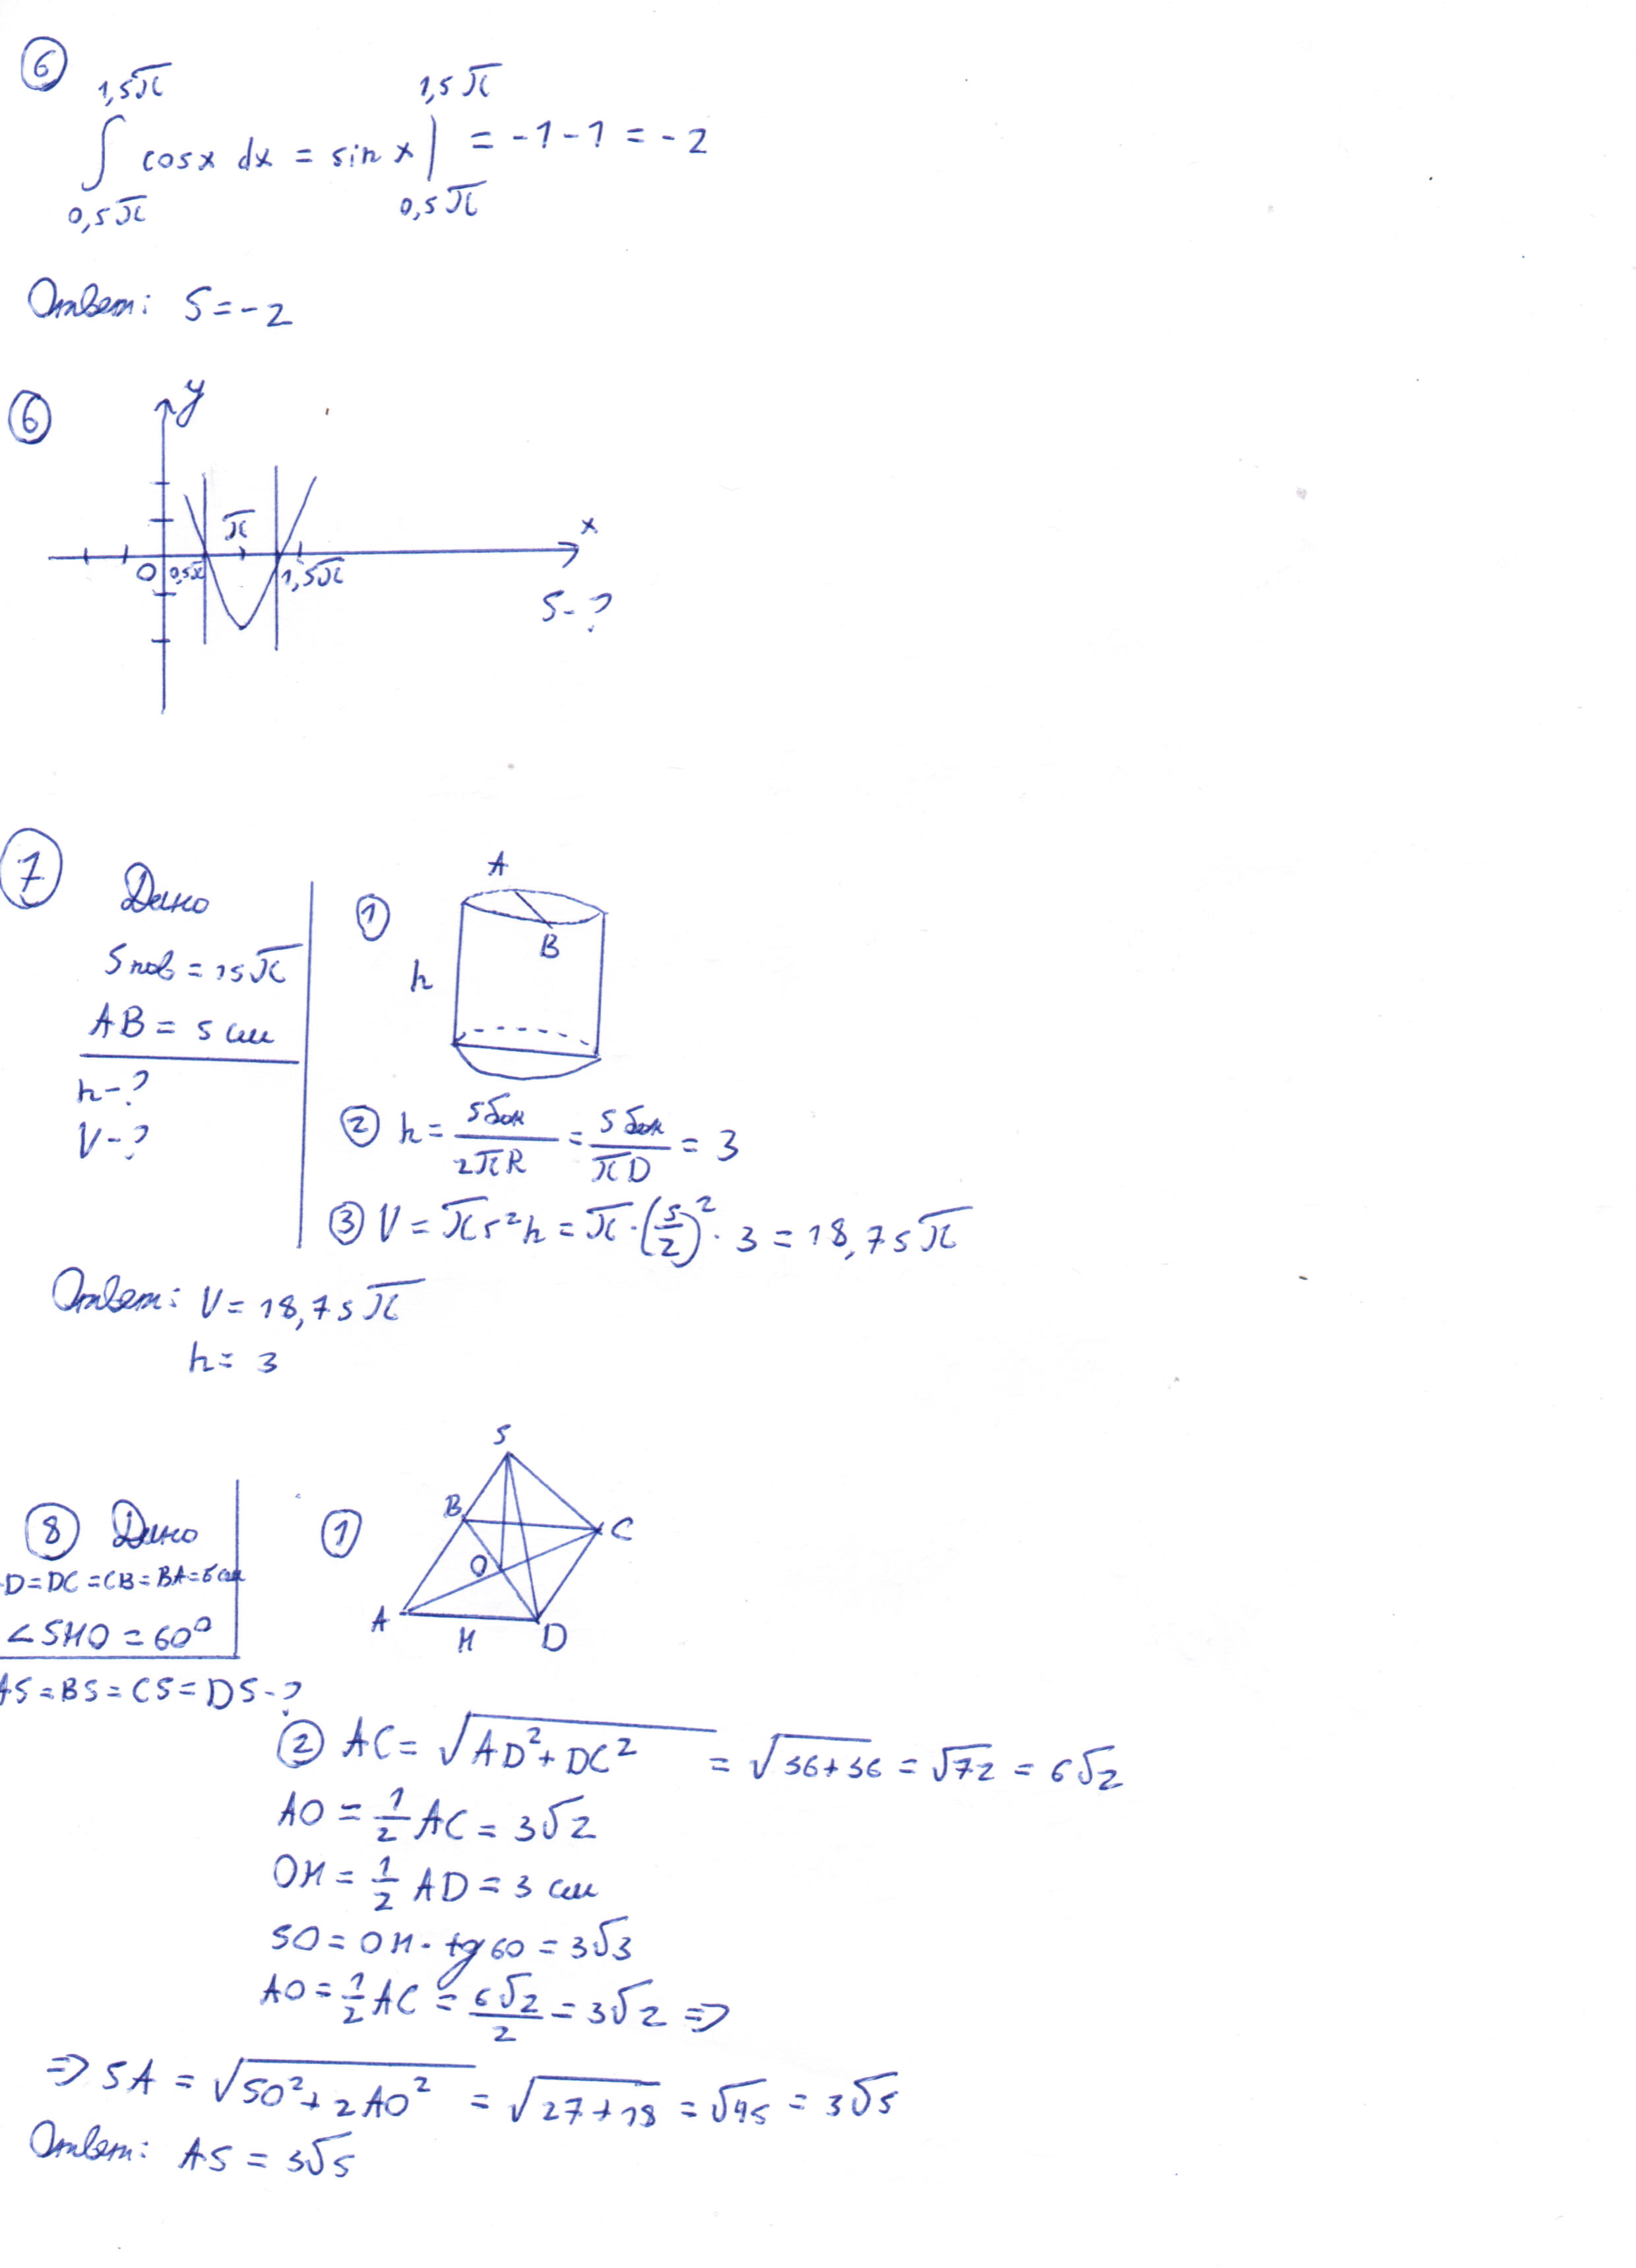 6
1,5π 1,5π
∫ cosx dx = sin x | = -1-1 = -2
0,5π 0,5π
Ответ: S=-2
6
y
π
x
0 0,5π 1,5π
S-?
7 Дано
Sпов = 15π
AB = 5 см
h-?
V-?
1
A
B
h
2 h = Sбок/2πR = Sбок/πD = 3
3 V = πr²h = π·(5/2)²·3 = 18,75π
Ответ: V = 18,75π
h = 3
8 Дано
D=DC=CB=BA=6см
∠SHO = 60°
AS=BS=CS=DS-?
1
S
B
C
O
A
H
D
2 AC = √AD²+DC² = √36+36 = √72 = 6√2
AO = 1/2 AC = 3√2
OH = 1/2 AD = 3 см
SO = OH · tg 60 = 3√3
AO = 1/2 AC = 6√2/2 = 3√2 ⇒
⇒ SA = √SO²+2AO² = √27+18 = √45 = 3√5
Ответ: AS = 3√5